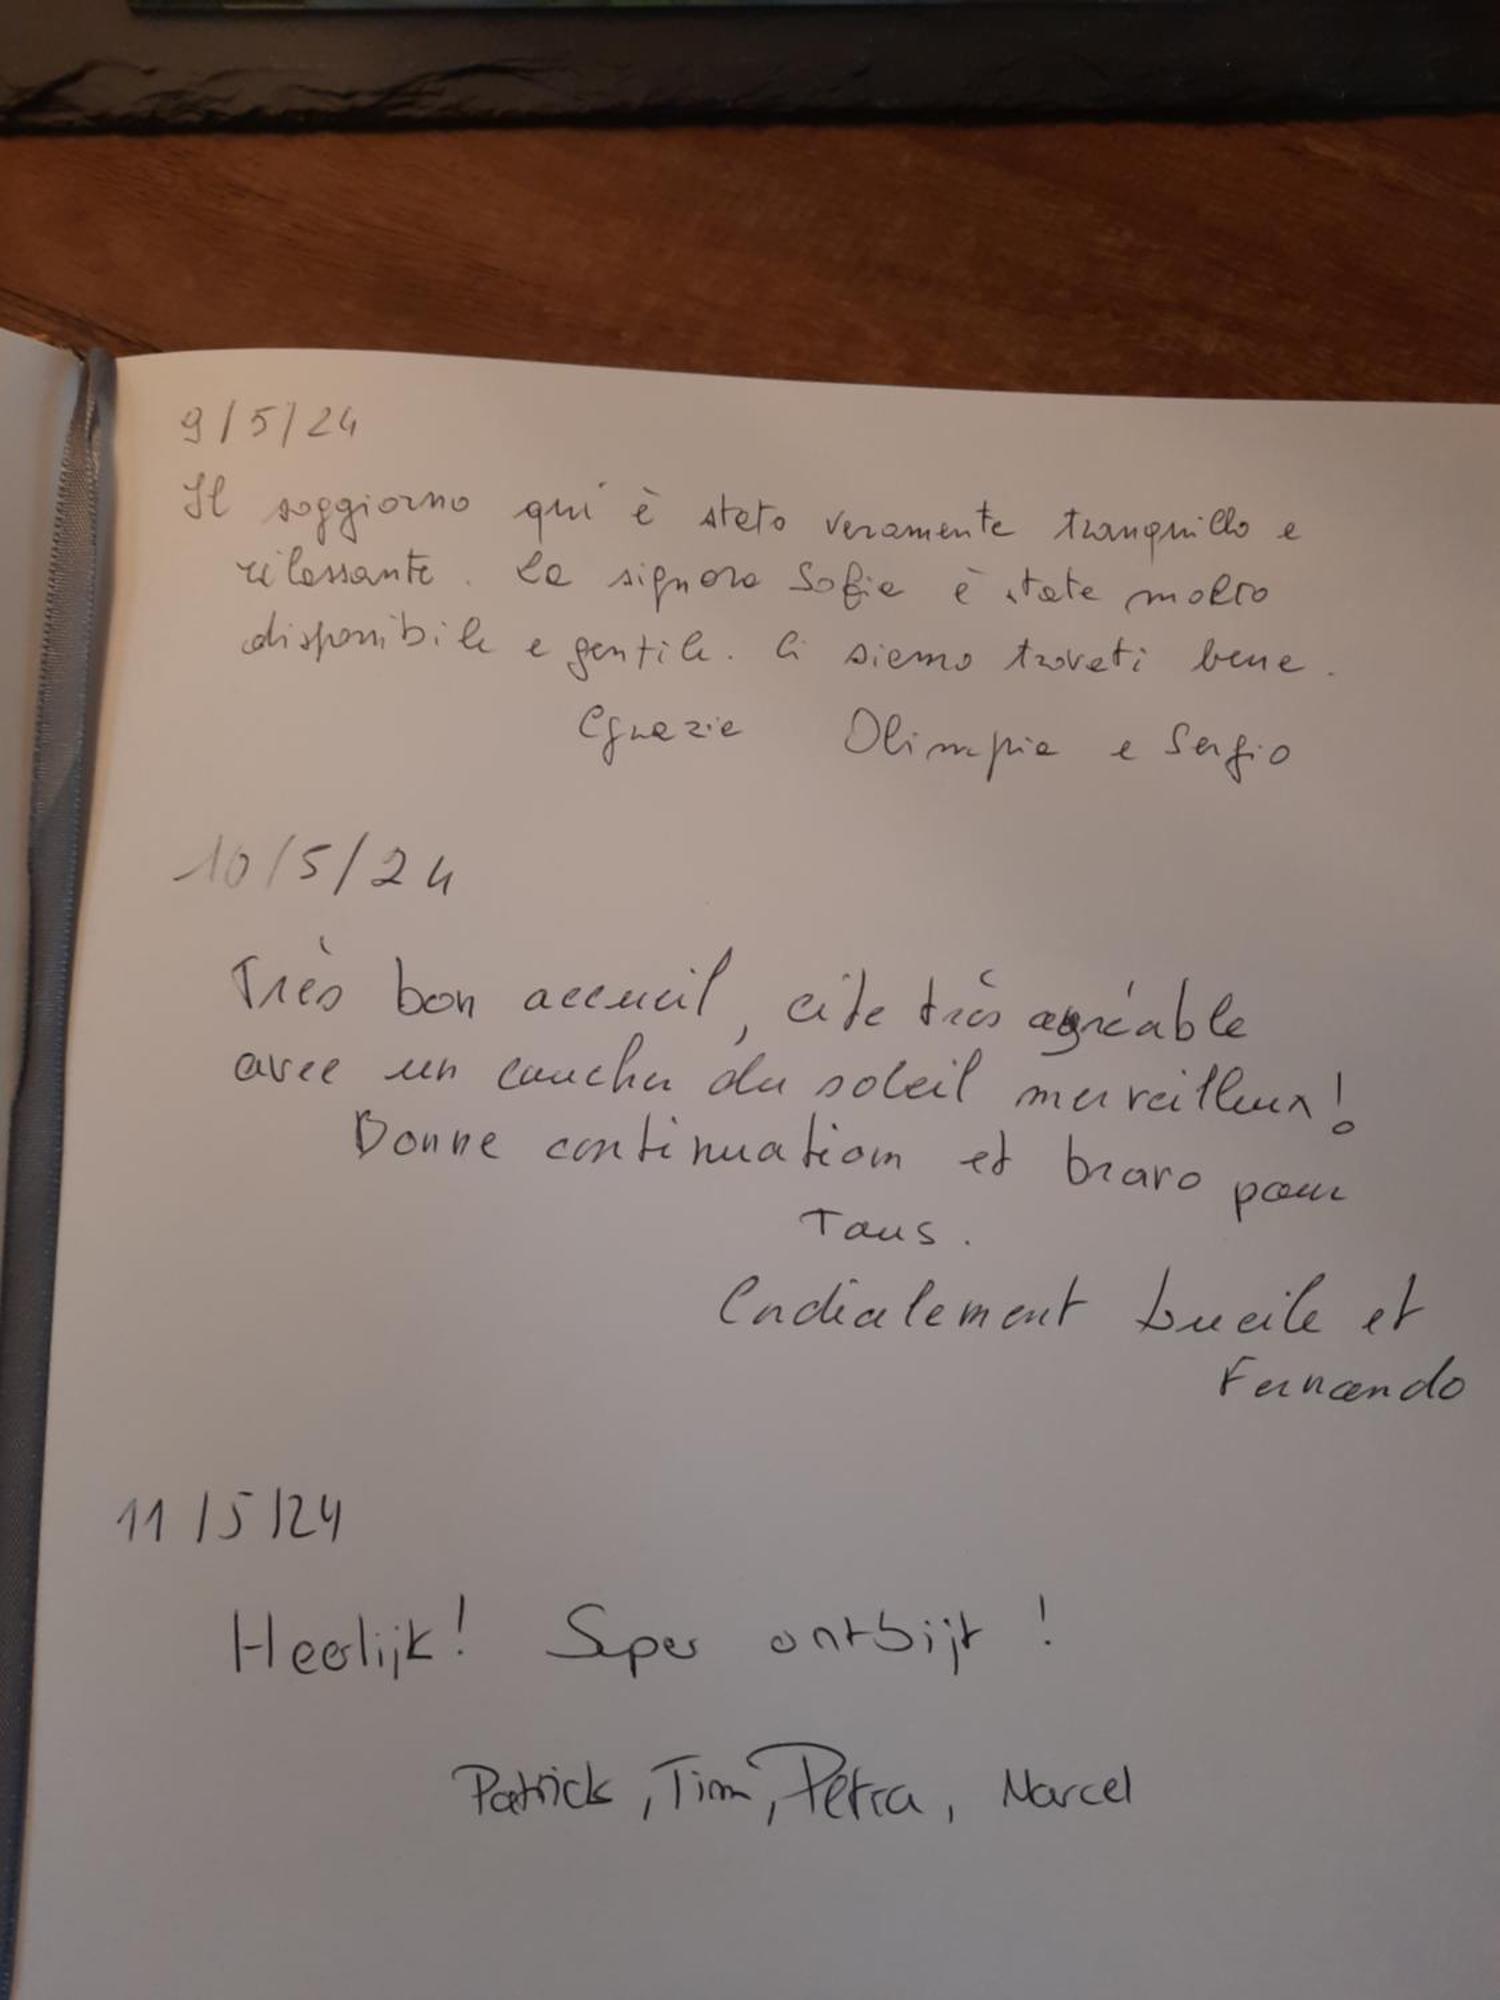 9/5/24
Il soggiorno qui è stato veramente tranquillo e
rilassante. La signora Sofia è stata molto
disponibile e gentile. Ci siamo trovati bene.
Grazie Olimpia e Sergio
10/5/24
Très bon accueil, cite très agréable
avec un coucher du soleil merveilleux!
Bonne continuation et bravo pour
Tous.
Cordialement Lucile et
Fernando
11/5/24
Heerlijk! Super ontbijt!
Patrick, Tim, Petra, Marcel